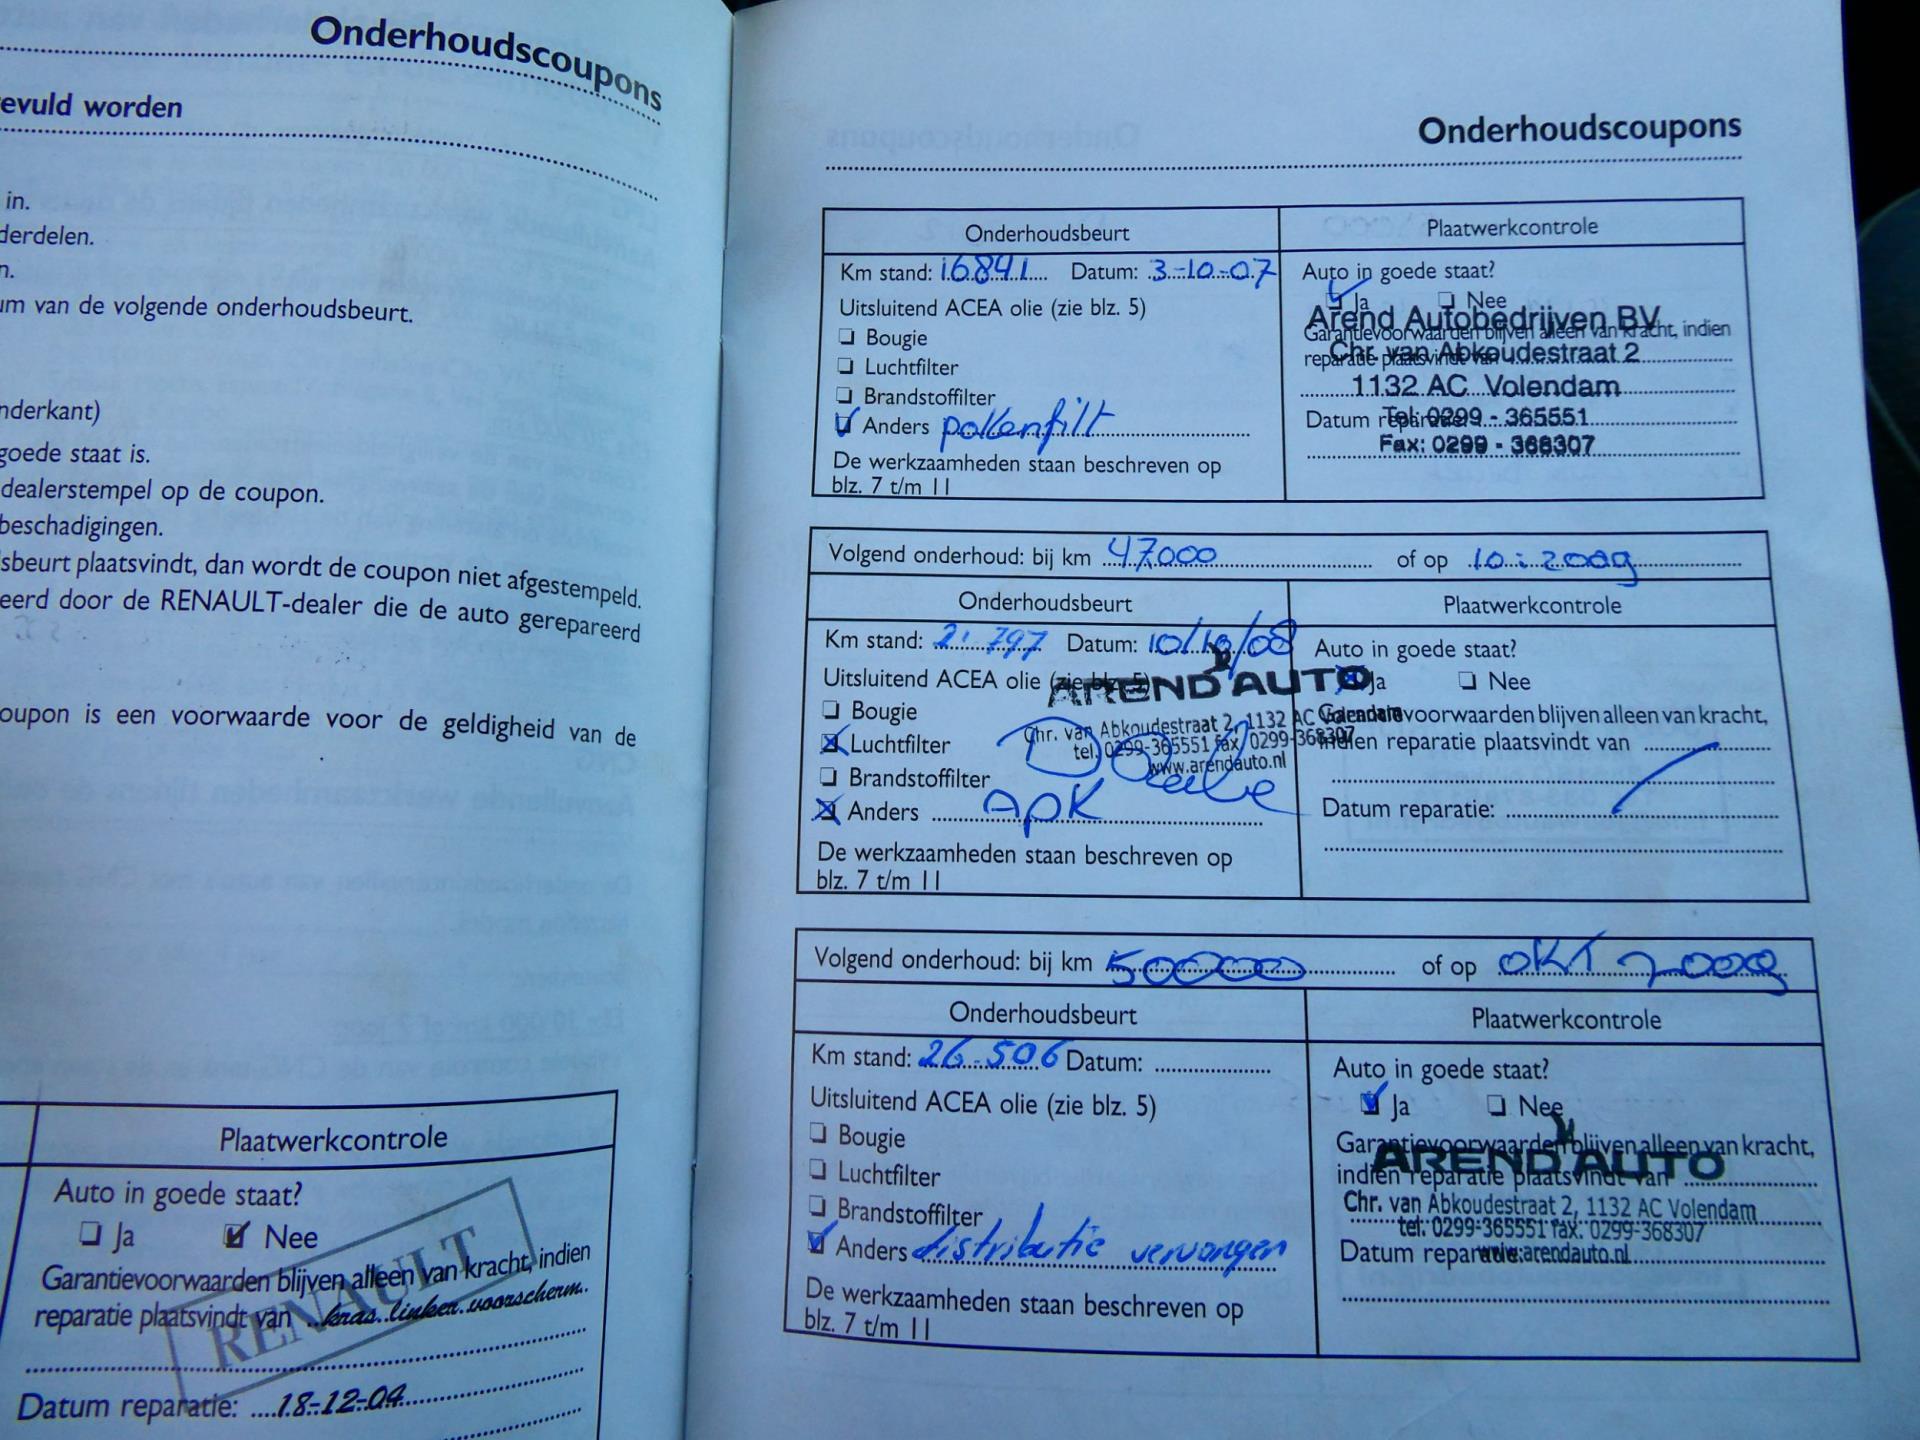 Onderhoudscoupons
evuld worden
in.
derdelen.
n.
um van de volgende onderhoudsbeurt.
nderkant)
goede staat is.
dealerstempel op de coupon.
beschadigingen.
sbeurt plaatsvindt, dan wordt de coupon niet afgestempeld.
eerd door de RENAULT-dealer die de auto gerepareerd
oupon is een voorwaarde voor de geldigheid van de
Plaatwerkcontrole
Auto in goede staat?
Ja Nee
Garantievoorwaarden blijven alleen van kracht, indien
reparatie plaatsvindt van kras linker voorscherm.
RENAULT
Datum reparatie: 18-12-04
Onderhoudscoupons
Onderhoudsbeurt
Km stand: 16841 Datum: 3-10-07
Uitsluitend ACEA olie (zie blz. 5)
Bougie
Luchtfilter
Brandstoffilter
Anders pollenfilt
De werkzaamheden staan beschreven op
blz. 7 t/m 11
Plaatwerkcontrole
Auto in goede staat?
Ja Nee
Arend Autobedrijven BV
Garantievoorwaarden blijven alleen van kracht, indien
Chr. van Abkoudestraat 2
reparatie plaatsvindt van
1132 AC Volendam
Datum reparatie:
Tel: 0299 - 365551
Fax: 0299 - 368307
Volgend onderhoud: bij km 47.000 of op 10 : 2009
Onderhoudsbeurt
Km stand: 797 Datum: 10/10/08
Uitsluitend ACEA olie (zie blz. 5)
Bougie
Luchtfilter
Brandstoffilter
Anders APK
De werkzaamheden staan beschreven op
blz. 7 t/m 11
AREND AUTO
Chr. van Abkoudestraat 2, 1132 AC Volendam
tel. 0299-365551 fax. 0299-368307
www.arendauto.nl
Plaatwerkcontrole
Auto in goede staat?
Ja Nee
Garantievoorwaarden blijven alleen van kracht,
indien reparatie plaatsvindt van
Datum reparatie:
Volgend onderhoud: bij km 50000 of op OKT 2009
Onderhoudsbeurt
Km stand: 26.506 Datum:
Uitsluitend ACEA olie (zie blz. 5)
Bougie
Luchtfilter
Brandstoffilter
Anders distributie vervangen
De werkzaamheden staan beschreven op
blz. 7 t/m 11
Plaatwerkcontrole
Auto in goede staat?
Ja Nee
Garantievoorwaarden blijven alleen van kracht,
AREND AUTO
indien reparatie plaatsvindt van
Chr. van Abkoudestraat 2, 1132 AC Volendam
tel: 0299-365551 fax: 0299-368307
Datum reparatie:
www.arendauto.nl